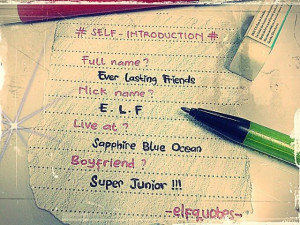 # SELF - INTRODUCTION #
Full name?
Ever lasting friends
Nick name?
E. L. F
Live at?
Sapphire Blue Ocean
Boyfriend?
Super Junior !!!
-elfquotes-